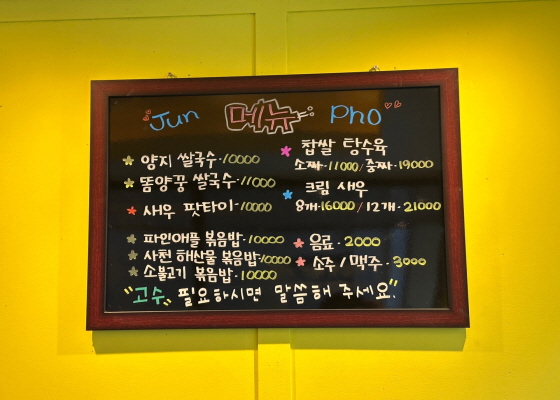 Jun 메뉴 Pho
양지 쌀국수·10000
똠양꿍 쌀국수·11000
새우 팟타이·10000
파인애플 볶음밥·10000
사천 해산물 볶음밥·10000
소불고기 볶음밥·10000
찹쌀 탕수육
소짜·11000/중짜·19000
크림 새우
8개·16000/12개·21000
음료·2000
소주/맥주·3000
"고수" 필요하시면 말씀해 주세요"